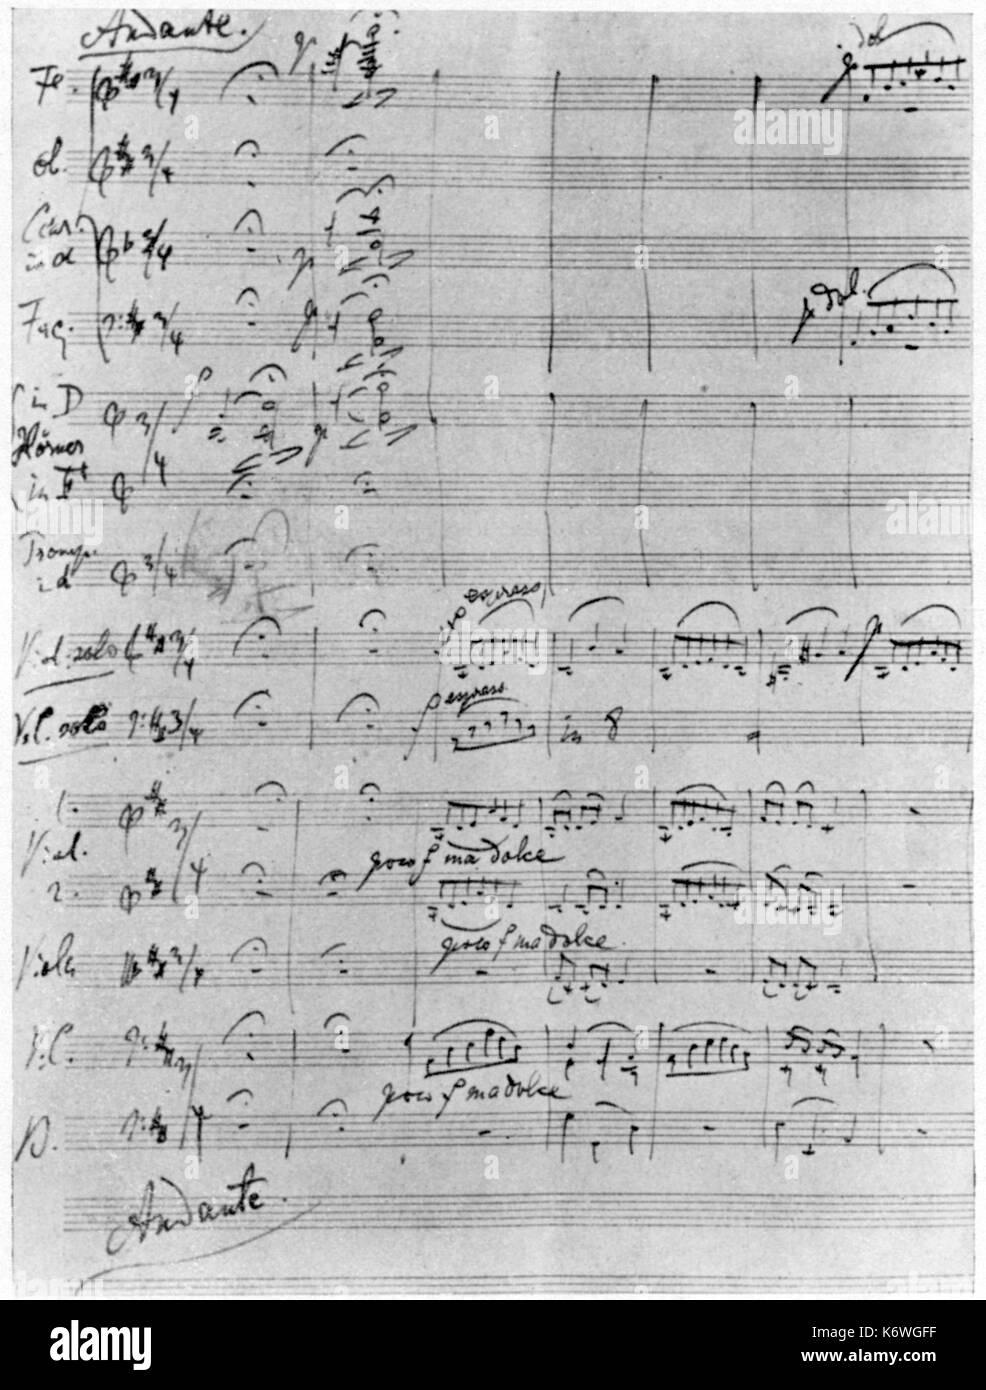 Andante.
Fl.
dol.
ob.
Clar.
in d
Fag.
p dol.
in D
Hörner
in F
Tromp.
in d
espresso
Viol. solo
f espresso
Vcl. solo
in 8
1.
Viol.
poco f ma dolce
2.
poco f ma dolce
Viola
V.C.
poco f ma dolce
B.
Andante.
alamy
a
Image ID: K6WGFF
www.alamy.com